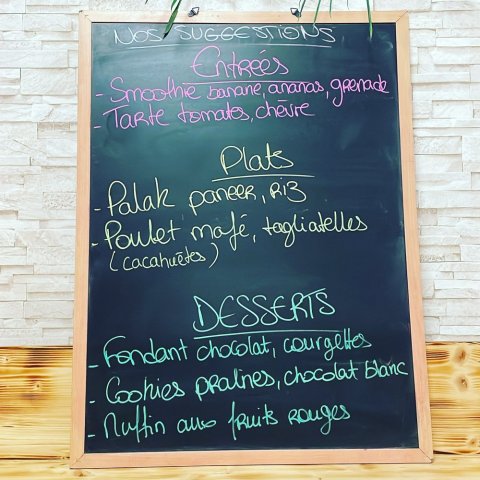 NOS SUGGESTIONS
Entrées
- Smoothie banane, ananas, grenade
- Tarte tomates, chèvre
Plats
- Palak paneer, riz
- Poulet mafé, tagliatelles
(cacahuètes)
DESSERTS
- Fondant chocolat, courgettes
- Cookies pralines, chocolat blanc
- Muffin aux fruits rouges